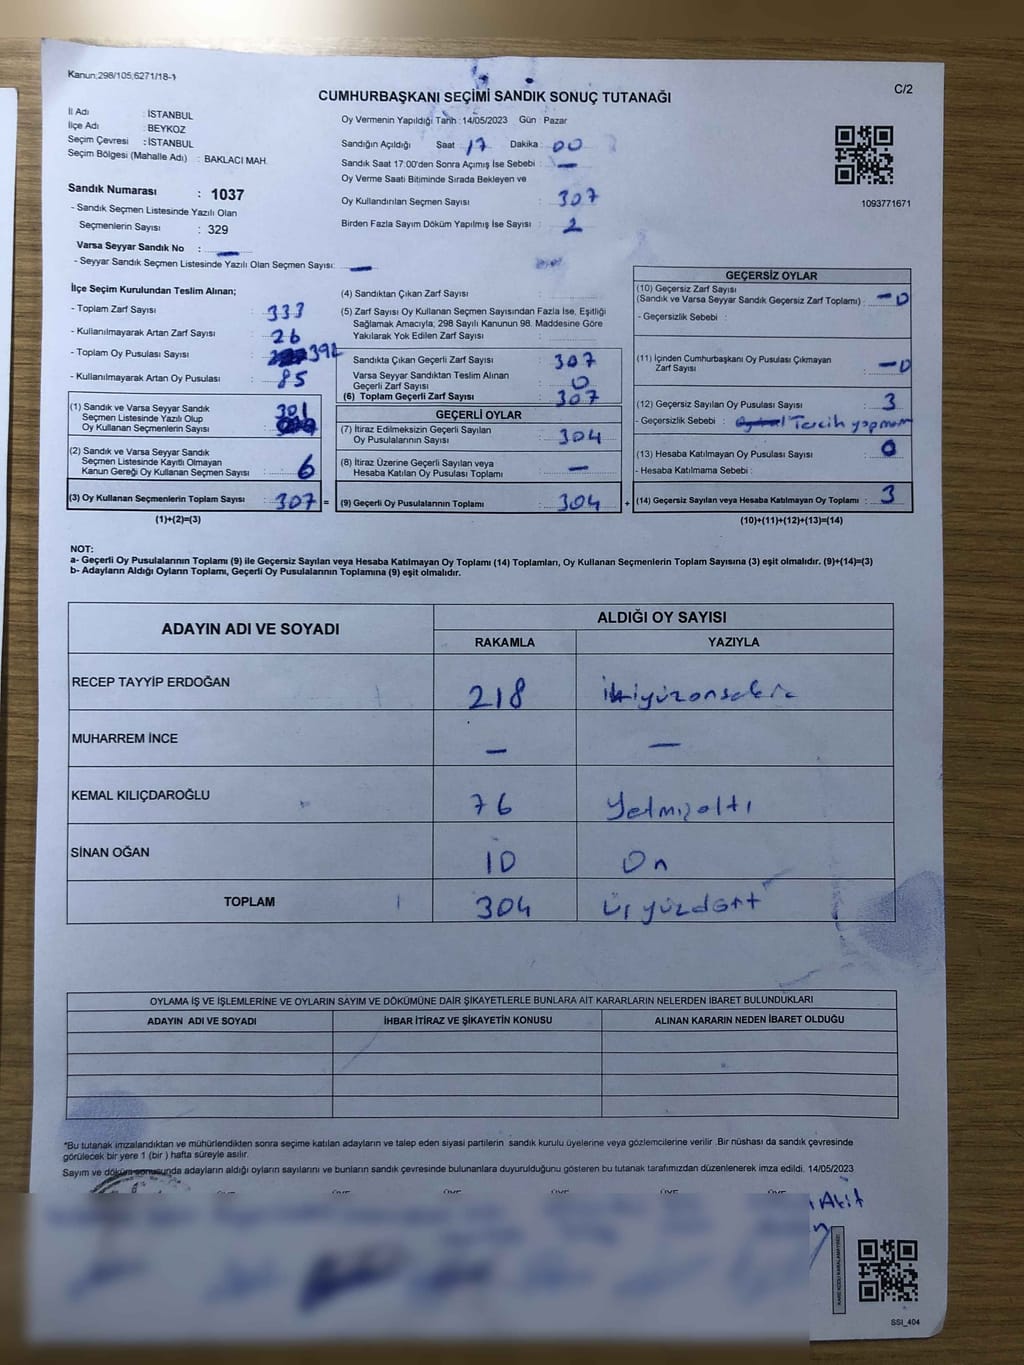 Kanun:298/105,6271/18-1
C/2
CUMHURBAŞKANI SEÇİMİ SANDIK SONUÇ TUTANAĞI
İl Adı : İSTANBUL
İlçe Adı : BEYKOZ
Seçim Çevresi : İSTANBUL
Seçim Bölgesi (Mahalle Adı) : BAKLACI MAH.
Sandık Numarası : 1037
- Sandık Seçmen Listesinde Yazılı Olan
Seçmenlerin Sayısı : 329
Varsa Seyyar Sandık No : —
- Seyyar Sandık Seçmen Listesinde Yazılı Olan Seçmen Sayısı: —
Oy Vermenin Yapıldığı Tarih :14/05/2023 Gün : Pazar
Sandığın Açıldığı Saat : 17 Dakika : 00
Sandık Saat 17:00'den Sonra Açımış İse Sebebi : —
Oy Verme Saati Bitiminde Sırada Bekleyen ve
Oy Kullandırılan Seçmen Sayısı : 307
Birden Fazla Sayım Döküm Yapılmış İse Sayısı : 2
1093771671
İlçe Seçim Kurulundan Teslim Alınan;
- Toplam Zarf Sayısı : 333
- Kullanılmayarak Artan Zarf Sayısı : 26
- Toplam Oy Pusulası Sayısı : 392
- Kullanılmayarak Artan Oy Pusulası : 85
(1) Sandık ve Varsa Seyyar Sandık
Seçmen Listesinde Yazılı Olup
Oy Kullanan Seçmenlerin Sayısı : 301
(2) Sandık ve Varsa Seyyar Sandık
Seçmen Listesinde Kayıtlı Olmayan
Kanun Gereği Oy Kullanan Seçmen Sayısı : 6
(3) Oy Kullanan Seçmenlerin Toplam Sayısı : 307 =
(1)+(2)=(3)
(4) Sandıktan Çıkan Zarf Sayısı :
(5) Zarf Sayısı Oy Kullanan Seçmen Sayısından Fazla İse, Eşitliği
Sağlamak Amacıyla, 298 Sayılı Kanunun 98. Maddesine Göre
Yakılarak Yok Edilen Zarf Sayısı :
Sandıkta Çıkan Geçerli Zarf Sayısı : 307
Varsa Seyyar Sandıktan Teslim Alınan
Geçerli Zarf Sayısı : 0
(6) Toplam Geçerli Zarf Sayısı : 307
GEÇERLİ OYLAR
(7) İtiraz Edilmeksizin Geçerli Sayılan
Oy Pusulalarının Sayısı : 304
(8) İtiraz Üzerine Geçerli Sayılan veya
Hesaba Katılan Oy Pusulası Toplamı : —
(9) Geçerli Oy Pusulalarının Toplamı : 304 +
GEÇERSİZ OYLAR
(10) Geçersiz Zarf Sayısı
(Sandık ve Varsa Seyyar Sandık Geçersiz Zarf Toplamı) : -0
- Geçersizlik Sebebi :
(11) İçinden Cumhurbaşkanı Oy Pusulası Çıkmayan
Zarf Sayısı : -0
(12) Geçersiz Sayılan Oy Pusulası Sayısı : 3
- Geçersizlik Sebebi : Tercih yapmam
(13) Hesaba Katılmayan Oy Pusulası Sayısı : 0
- Hesaba Katılmama Sebebi :
(14) Geçersiz Sayılan veya Hesaba Katılmayan Oy Toplamı : 3
(10)+(11)+(12)+(13)=(14)
NOT:
a- Geçerli Oy Pusulalarının Toplamı (9) ile Geçersiz Sayılan veya Hesaba Katılmayan Oy Toplamı (14) Toplamları, Oy Kullanan Seçmenlerin Toplam Sayısına (3) eşit olmalıdır. (9)+(14)=(3)
b- Adayların Aldığı Oyların Toplamı, Geçerli Oy Pusulalarının Toplamına (9) eşit olmalıdır.
ADAYIN ADI VE SOYADI
ALDIĞI OY SAYISI
RAKAMLA YAZIYLA
RECEP TAYYİP ERDOĞAN 218 ikiyüzonsekiz
MUHARREM İNCE — —
KEMAL KILIÇDAROĞLU 76 Yetmişaltı
SİNAN OĞAN 10 On
TOPLAM 304 Üçyüzdört
OYLAMA İŞ VE İŞLEMLERİNE VE OYLARIN SAYIM VE DÖKÜMÜNE DAİR ŞİKAYETLERLE BUNLARA AİT KARARLARIN NELERDEN İBARET BULUNDUKLARI
ADAYIN ADI VE SOYADI İHBAR İTİRAZ VE ŞİKAYETİN KONUSU ALINAN KARARIN NEDEN İBARET OLDUĞU
*Bu tutanak imzalandıktan ve mühürlendikten sonra seçime katılan adayların ve talep eden siyasi partilerin sandık kurulu üyelerine veya gözlemcilerine verilir .Bir nüshası da sandık çevresinde
görülecek bir yere 1 (bir ) hafta süreyle asılır.
Sayım ve döküm sonusunda adayların aldığı oyların sayılarını ve bunların sandık çevresinde bulunanlara duyurulduğunu gösteren bu tutanak tarafımızdan düzenlenerek imza edildi. 14/05/2023
ÜYE ÜYE ÜYE ÜYE ÜYE ÜYE
Akit
SSI_404